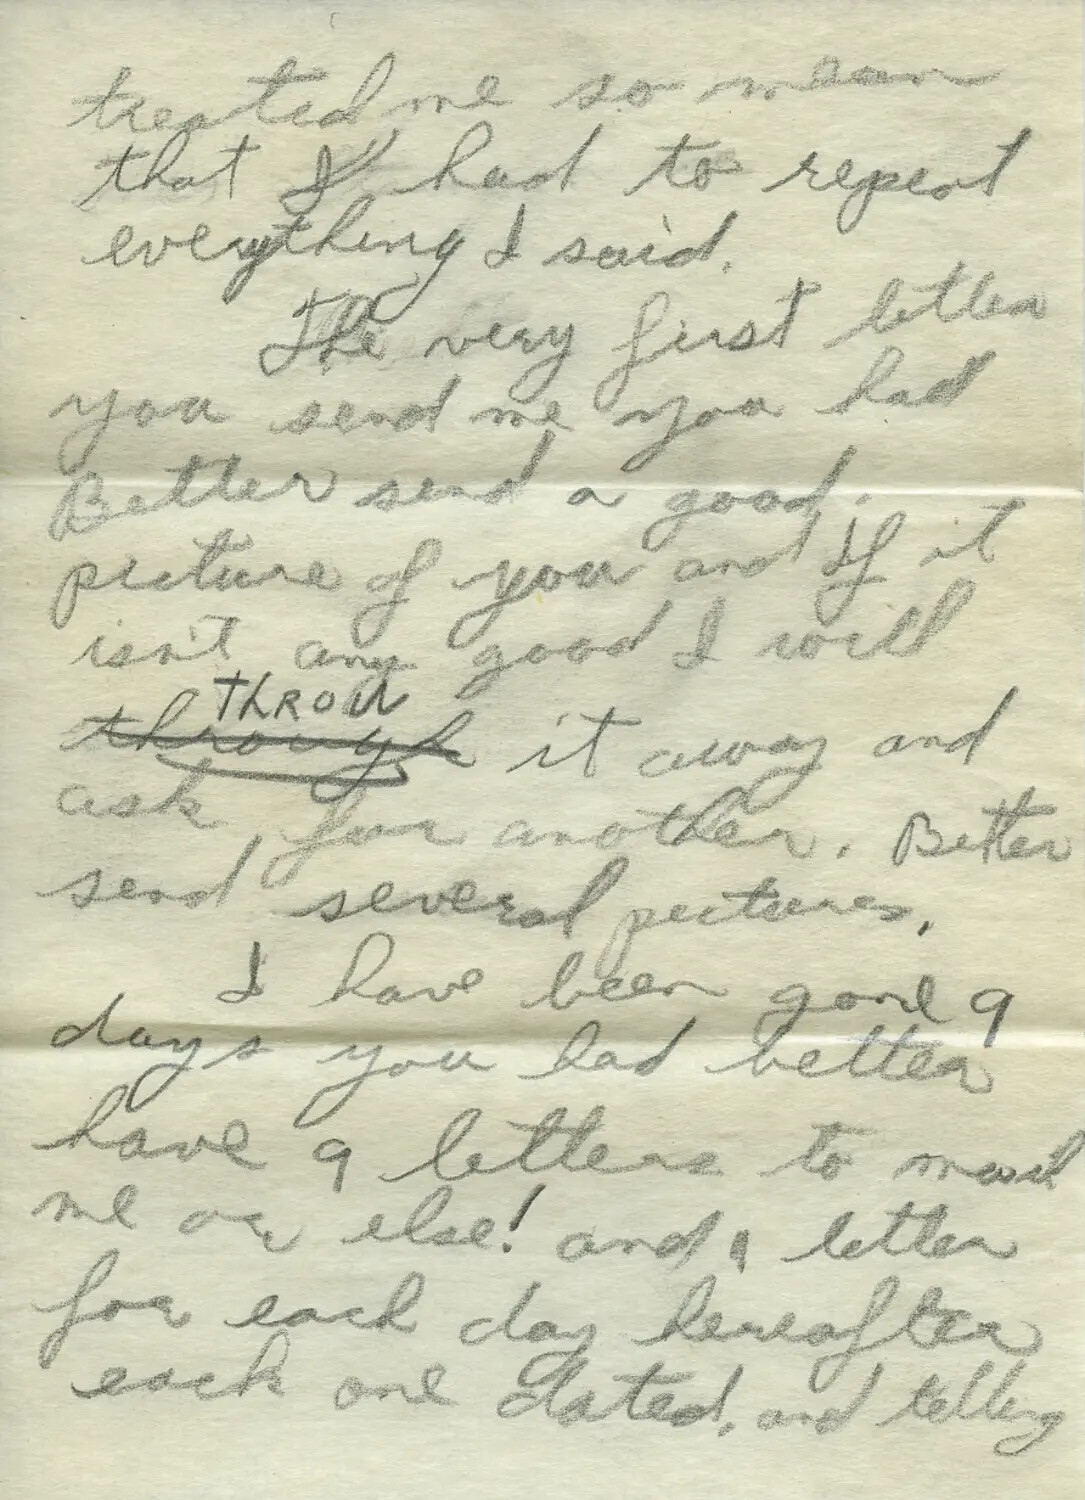 treated me so mean
that I had to repeat
everything I said.
The very first letter
you send me you had
Better send a good
picture of you and If it
isn't any good I will
THROW
through it away and
ask for another. Better
send several pictures.
I have been gone 9
days you had better
have 9 letters to mail
me or else! and 1 letter
for each day hereafter
each one dated, and telling